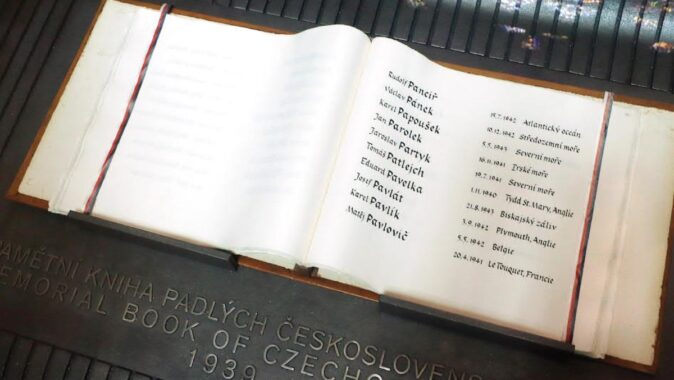 Rudolf Pancíř 19.7.1942 Atlantický oceán
Václav Pánek 10.12.1942 Středozemní moře
Karel Papoušek 5.5.1943 Severní moře
Jan Parolek 16.11.1941 Irské moře
Jaroslav Partyk 19.7.1941 Severní moře
Tomáš Patlejch 1.11.1940 Tydd St. Mary, Anglie
Eduard Pavelka 21.8.1943 Biskajský záliv
Josef Pavlát 3.9.1942 Plymouth, Anglie
Karel Pavlík 5.5.1942 Belgie
Matěj Pavlovič 20.4.1941 Le Touquet, Francie
PAMĚTNÍ KNIHA PADLÝCH ČESKOSLOVENS
MEMORIAL BOOK OF CZECHO
1939